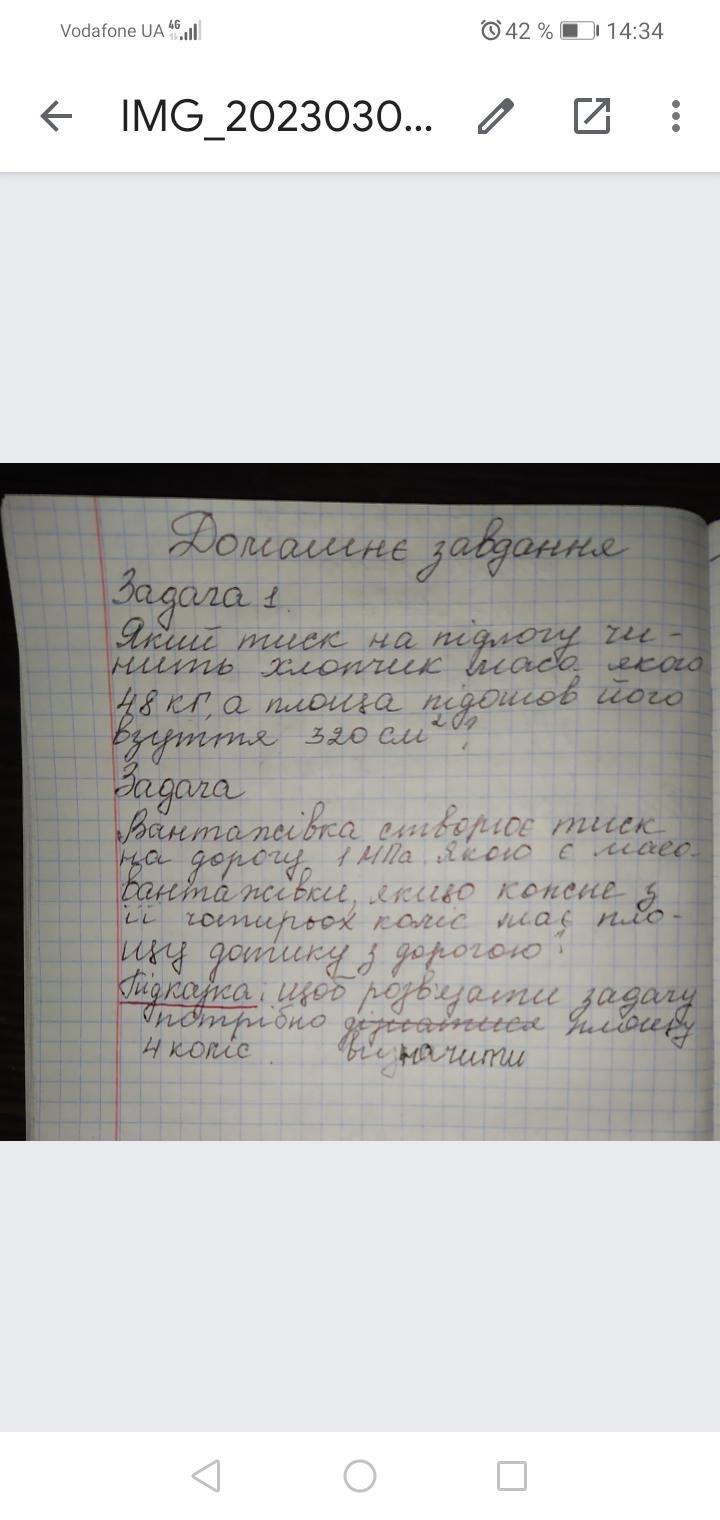 Vodafone UA 4G 42 % 14:34
IMG_2023030...
Домашнє завдання
Задача 1.
Який тиск на підлогу чи-
нить хлопчик маса якого
48 кг, а площа підошов його
взуття 320 см²?
Задача
Вантажівка створює тиск
на дорогу 1 МПа. Якою є маса
вантажівки, якщо кожне з
її чотирьох коліс має пло-
щу дотику з дорогою?
Підказка: щоб розв'язати задачу
потрібно дізнатися площу
4 коліс. визначити